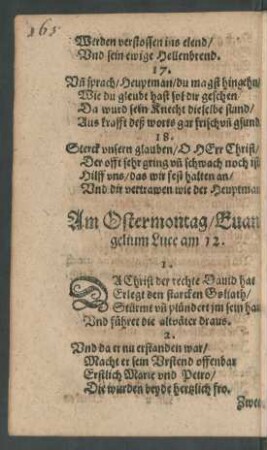 165
Werden verstossen ins elend/
Vnd sein ewige Hellenbrend.
17.
Vñ sprach/Heuptman/du magst hingehn/
Wie du gleubt hast sol dir geschen
Da wurd sein Knecht dieselbe stund/
Aus krafft deß worts gar frisch vñ gsund
18.
Sterck vnsern glauben/O HErr Christ/
Der offt sehr gring vñ schwach noch ist
Hilff vns/das wir fest halten an/
Vnd dir vertrawen wie der Heuptman
Am Ostermontag/Euan
gelium Luce am 12.
1.
DA Christ der rechte Dauid hat
Erlegt den starcken Goliath/
Stürmt vñ plündert jm sein hau
Vnd führet die altväter draus.
2.
Vnd da er nu erstanden war/
Macht er sein Vrstend offenbar
Erstlich Marie vnd Petro/
Die wurden beyde hertzlich fro.
Zwee